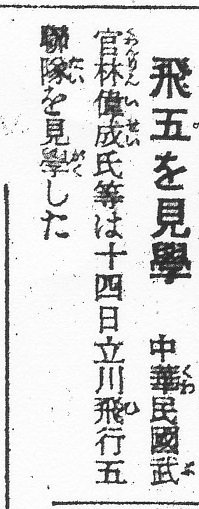 飛五を見學　中華民國武
官林偉成氏等は十四日立川飛行五
聯隊を見學した